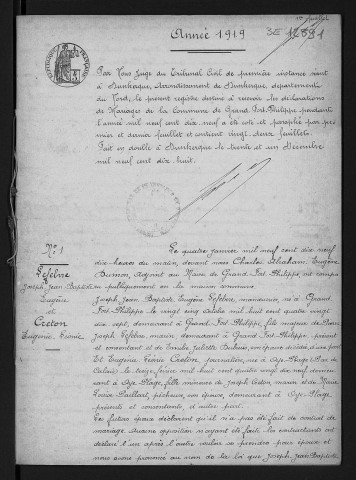 1er feuillet
Année 1919
3E 12881
Par Nous Juge du Tribunal Civil de première instance séant
à Dunkerque, Arrondissement de Dunkerque département
du Nord, le présent registre destiné à recevoir les déclarations
de Mariages de la Commune de Grand-Fort-Philippe pendant
l'année mil neuf cent dix neuf a été coté et paraphé par pre-
mier et dernier feuillet et contient vingt deux feuillets.
Fait en double à Dunkerque le trente et un Décembre
mil neuf cent dix huit.
No 1
Lefebvre
Joseph Jean Baptiste
Eugène
et
Creton
Eugénie Fémie
Le quatre janvier mil neuf cent dix neuf
dix heures du matin, devant nous Charles Abraham Eugène
Buisson, Adjoint au Maire de Grand-Fort-Philippe, ont compa-
ru publiquement en la maison commune
Joseph Jean Baptiste Eugène Lefebvre, marin, né à Grand-
Fort-Philippe le vingt cinq mil huit cent quatre vingt
dix sept, demeurant à Grand-Fort-Philippe, fils majeur de Pierre
Joseph Lefebvre, marin, demeurant à Grand-Fort-Philippe
présent et consentant et de Juliette
Et Eugénie Fémie Creton, journalière, née à Oye-Plage (Pas de
Calais) le treize février mil huit cent quatre vingt dix neuf demeu-
rant à Oye Plage, fille mineure de Joseph Creton, marin et de Marie
Louise Paillart, pêcheuse, son épouse, demeurant à Oye-Plage,
présents et consentants, d'autre part.
Les futurs époux déclarent qu'il n'a pas été fait de contrat de
mariage. Aucune opposition n'ayant été faite les contractants ont
déclaré l'un après l'autre vouloir se prendre pour époux et
nous avons prononcé au nom de la loi que Joseph Jean Baptiste